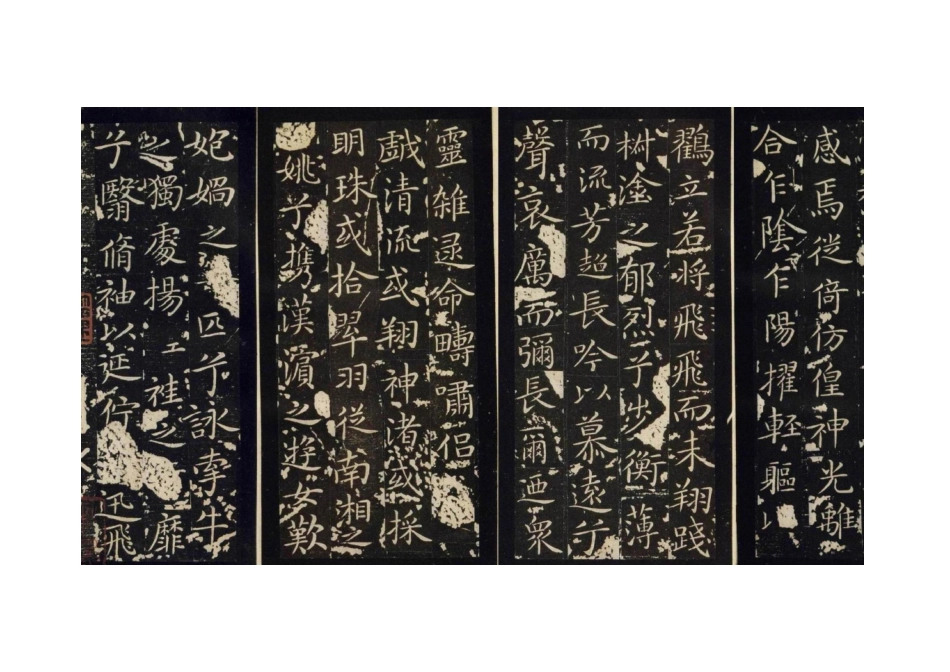 感焉徙倚彷徨神光離
合乍陰乍陽擢輕軀以
鸛立若將飛飛而未翔踐
椒塗之郁烈兮步衡薄
而流芳超長吟以慕遠兮
聲哀厲而彌長爾迺眾
靈雜遝命疇嘯侶
戲清流或翔神渚或採
明珠或拾翠羽從南湘之
姚兮携漢濱之遊女歎
媧之匹兮詠牽牛
之獨處揚袿之靡
兮翳脩袖以延佇迅飛